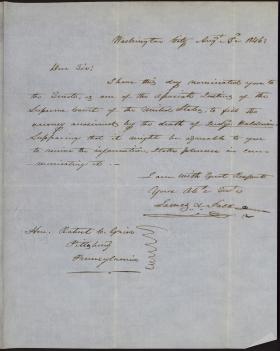 Washington City Augt 3d 1846
Hon Sir:
I have this day nominated you to
the Senate, as one of the Associate Justices of the
Supreme Court of the United States, to fill the
vacancy occasioned by the death of Judge Baldwin.
Supposing that it might be agreeable to you
to receive the information, I take pleasure in com-
municating it.
I am with Great Respect
Your Obt. Svt.
James K. Polk
Hon. Robert C. Grier
Pittsburg
Pennsylvania